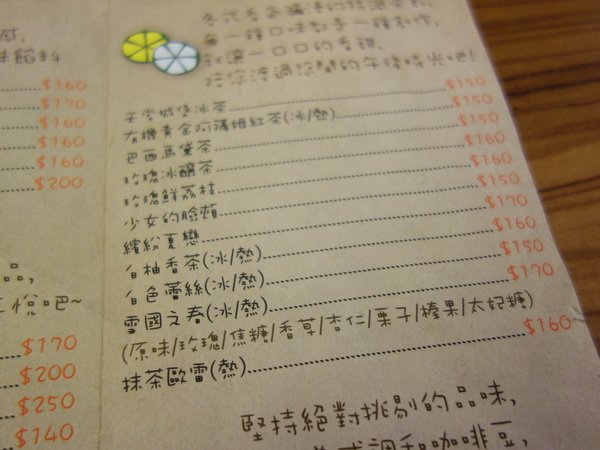 味餡料
$160
$170
$160
$160
$160
$200
品,
悅吧~
$170
$200
$250
$140
每一種口味都是一種創作,
就讓一口口的香甜,
陪您渡過悠閒的午後時光吧!
天堂城堡冰茶 $150
有機黃金阿薩姆紅茶(冰/熱) $150
巴西馬黛茶 $150
玫瑰冰釀茶 $160
玫瑰鮮荔枝 $160
少女的臉頰 $150
繽紛夏戀 $170
白柚香茶(冰/熱) $160
白色蕾絲(冰/熱) $150
雪國之春(冰/熱) $170
(原味/玫瑰/焦糖/香草/杏仁/栗子/榛果/太妃糖)
抹茶歐雷(熱) $160
堅持絕對挑剔的品味,
式調和咖啡豆,